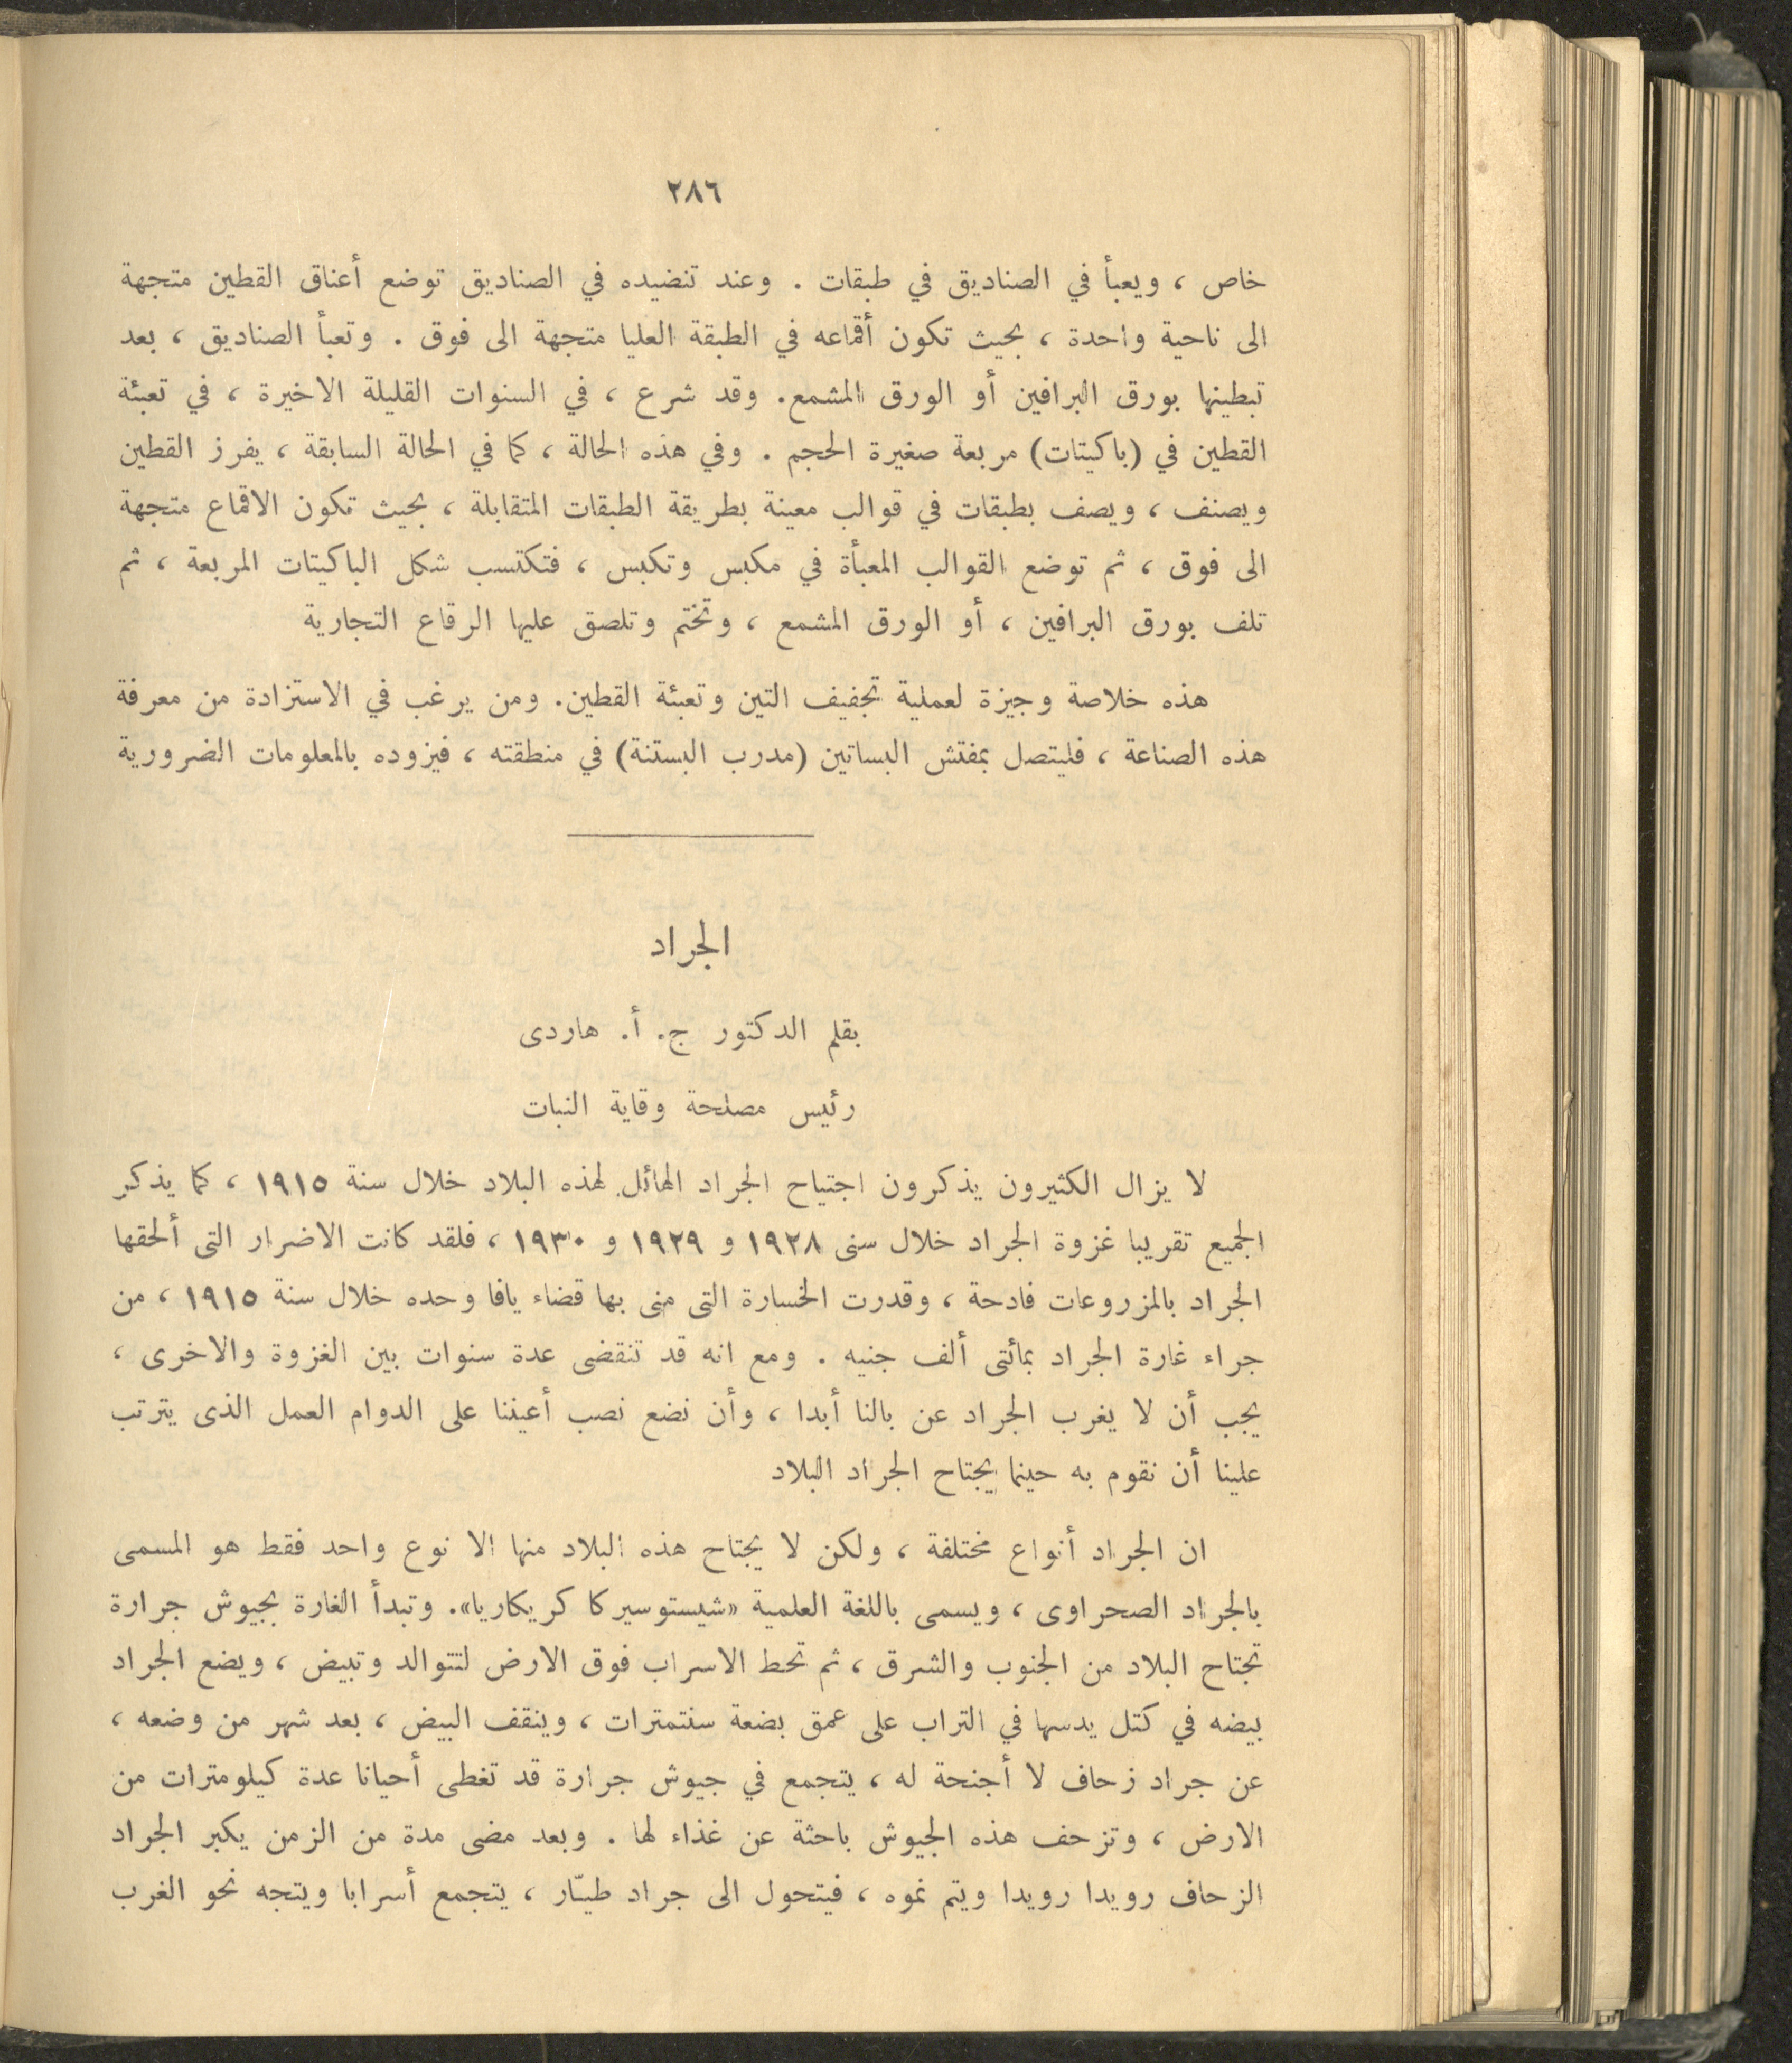 ٢٨٦
خاص ، ويعبأ في الصناديق في طبقات . وعند تنضيده في الصناديق توضع أعناق القطين متجهة
الى ناحية واحدة ، بحيث تكون أقماعه في الطبقة العليا متجهة الى فوق . وتعبأ الصناديق ، بعد
تبطينها بورق البرافين أو الورق المشمع. وقد شرع ، في السنوات القليلة الاخيرة ، في تعبئة
القطين في (باكيتات) مربعة صغيرة الحجم . وفي هذه الحالة ، كما في الحالة السابقة ، يفرز القطين
ويصنف ، ويصف بطبقات في قوالب معينة بطريقة الطبقات المتقابلة ، بحيث تكون الاقماع متجهة
الى فوق ، ثم توضع القوالب المعبأة في مكبس وتكبس ، فتكتسب شكل الباكيتات المربعة ، ثم
تلف بورق البرافين ، أو الورق المشمع ، وتختم وتلصق عليها الرقاع التجارية
هذه خلاصة وجيزة لعملية تجفيف التين وتعبئة القطين. ومن يرغب في الاستزادة من معرفة
هذه الصناعة ، فليتصل بمفتش البساتين (مدرب البستنة) في منطقته ، فيزوده بالمعلومات الضرورية
الجراد
بقلم الدكتور ج. أ. هاردى
رئيس مصلحة وقاية النبات
لا يزال الكثيرون يذكرون اجتياح الجراد الهائل لهذه البلاد خلال سنة ١٩١٥ ، كما يذكر
الجميع تقريبا غزوة الجراد خلال سنى ١٩٢٨ و ١٩٢٩ و ١٩٣٠ ، فلقد كانت الاضرار التى ألحقها
الجراد بالمزروعات فادحة ، وقدرت الخسارة التى منى بها قضاء يافا وحده خلال سنة ١٩١٥ ، من
جراء غارة الجراد بمائتى ألف جنيه . ومع انه قد تنقضى عدة سنوات بين الغزوة والاخرى ،
يجب أن لا يغرب الجراد عن بالنا أبدا ، وأن نضع نصب أعيننا على الدوام العمل الذى يترتب
علينا أن نقوم به حينما يجتاح الجراد البلاد
ان الجراد أنواع مختلفة ، ولكن لا يجتاح هذه البلاد منها الا نوع واحد فقط هو المسمى
بالجراد الصحراوى ، ويسمى باللغة العلمية «شيستوسيركا كريكاريا». وتبدأ الغارة بجيوش جرارة
تجتاح البلاد من الجنوب والشرق ، ثم تحط الاسراب فوق الارض لتتوالد وتبيض ، ويضع الجراد
بيضه في كتل يدسها في التراب على عمق بضعة سنتمترات ، وينقف البيض ، بعد شهر من وضعه ،
عن جراد زحاف لا أجنحة له ، يتجمع في جيوش جرارة قد تغطى أحيانا عدة كيلومترات من
الارض ، وتزحف هذه الجيوش باحثة عن غذاء لها . وبعد مضى مدة من الزمن يكبر الجراد
الزحاف رويدا رويدا ويتم نموه ، فيتحول الى جراد طيّار ، يتجمع أسرابا ويتجه نحو الغرب